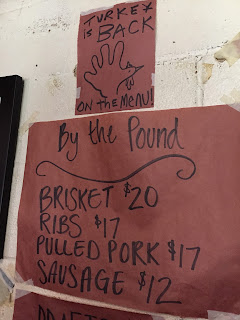 TURKEY
is BACK
ON the MENU!
By the Pound
BRISKET $20
RIBS $17
PULLED PORK $17
SAUSAGE $12